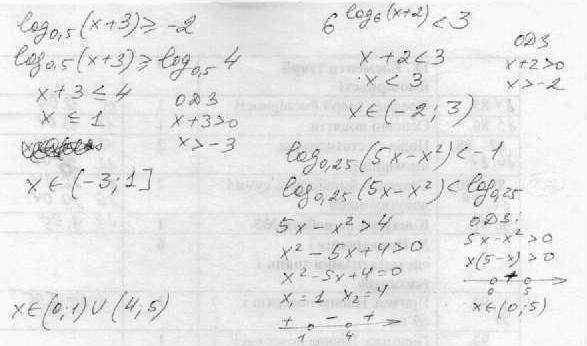 log₀,₅(x+3) ≥ -2
log₀,₅(x+3) ≥ log₀,₅ 4
x+3 ≤ 4
x ≤ 1
ОДЗ
x+3>0
x>-3
x ∈ (-3; 1]
6^log₆(x+2) < 3
x+2<3
x<3
x∈(-2; 3)
ОДЗ
x+2>0
x>-2
log₀,₂₅(5x-x²) < -1
log₀,₂₅(5x-x²) < log₀,₂₅
5x-x²>4
x²-5x+4>0
x²-5x+4=0
x₁=1 x₂=4
+ - +
1 4
ОДЗ:
5x-x²>0
x(5-x)>0
+
0 5
x∈(0; 5)
x∈(0; 1) ∪ (4, 5)